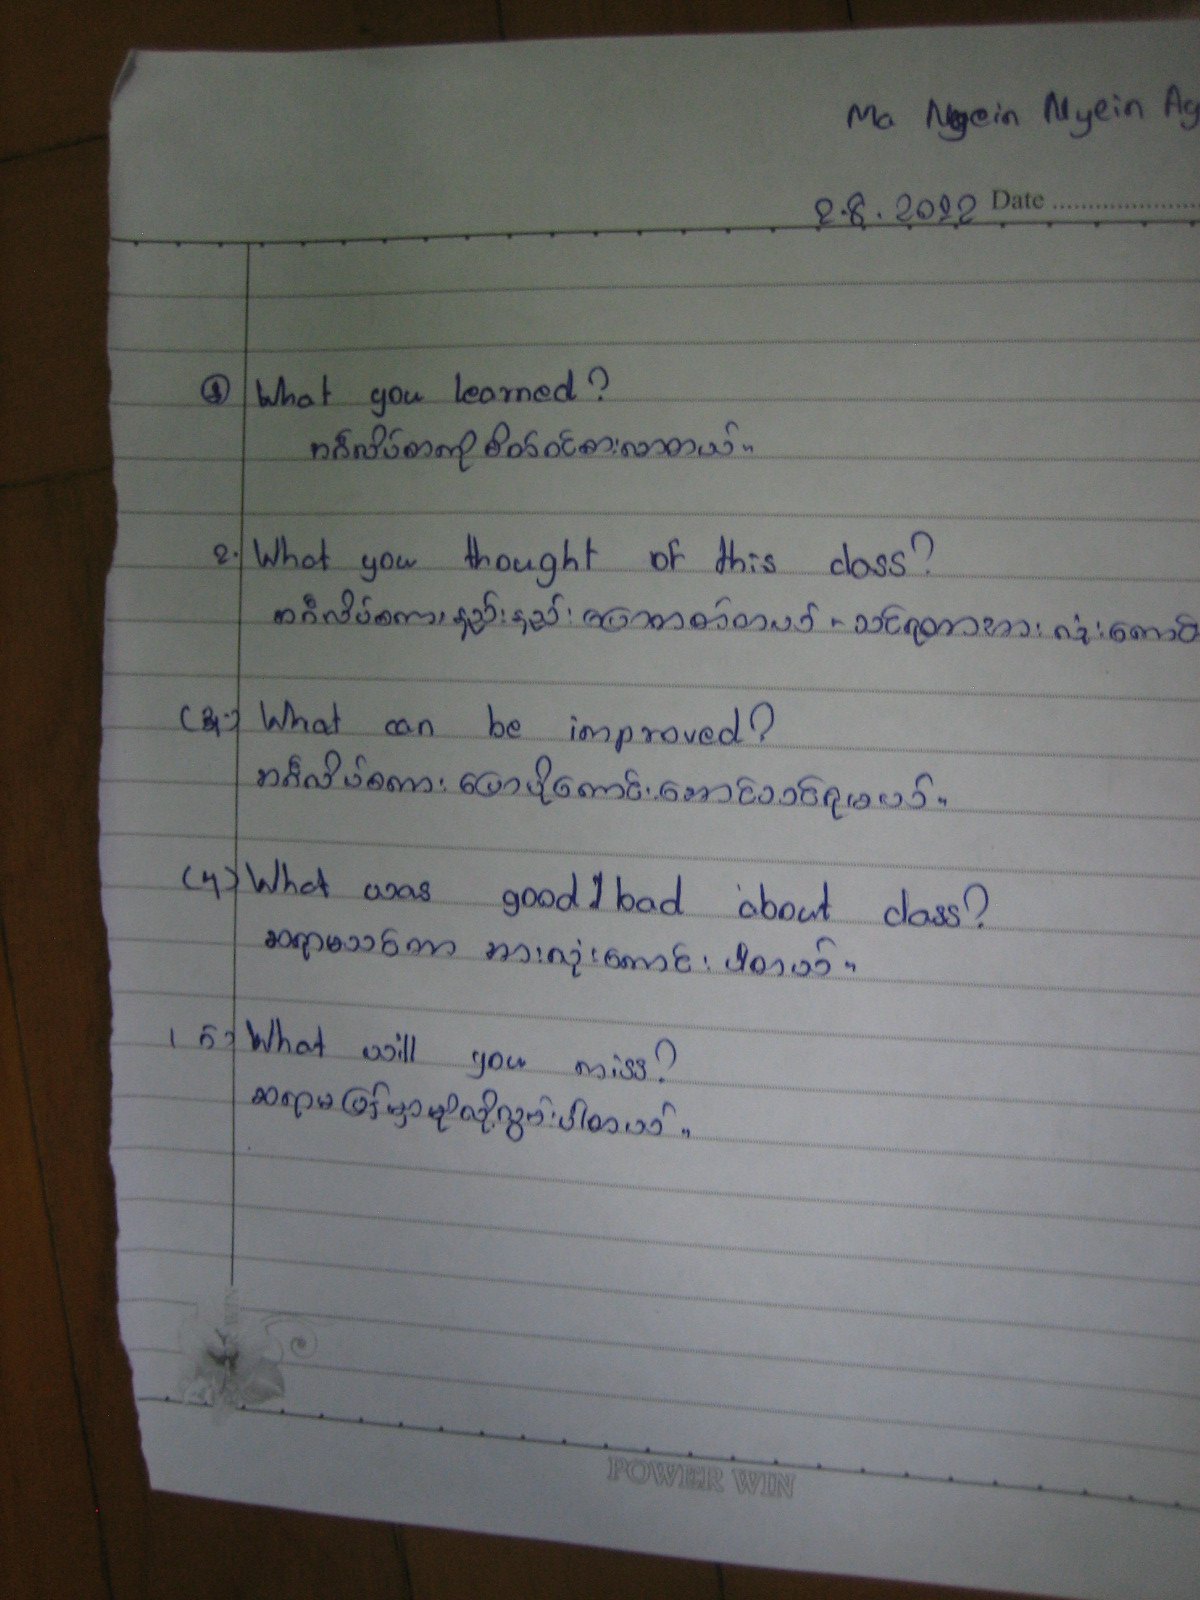 Ma Nyein Nyein Ag
2.8.2022 Date
① What you learned?
အင်္ဂလိပ်စာကို စိတ်ဝင်စားလာတယ်။
2. What you thought of this class?
အင်္ဂလိပ်စကား နည်းနည်း ပြောတတ်တယ်။ သင်ရတာအားလုံးကောင်
(3.) What can be improved?
အင်္ဂလိပ်စကား ပြောဖို့ကောင်းအောင်သင်ရမယ်။
(4) What was good/bad about class?
ဆရာမသင်တာ အားလုံးကောင်းပါတယ်။
(5) What will you miss?
ဆရာမ မြန်မာမှုကိုလွမ်းပါတယ်။
POWER WIN